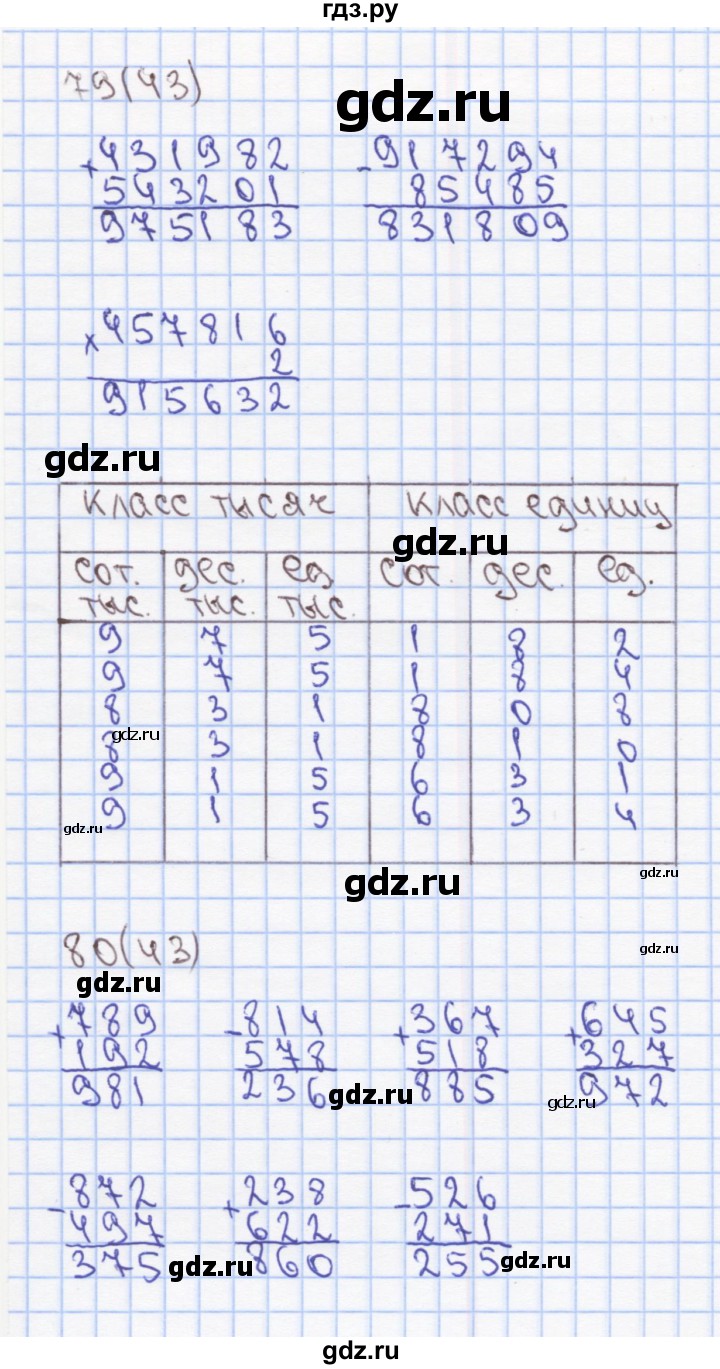 гдз.ру
79(43)
gdz.ru
+431982
543201
975183
-917294
85485
831809
×457816
2
915632
gdz.ru
класс тысяч класс единиц
gdz.ru
сот. тыс. дес. тыс. ед тыс. сот. дес. ед.
9 7 5 1 8 2
9 7 5 1 8 4
8 3 1 8 0 8
8 3 1 8 1 0
gdz.ru
9 1 5 6 3 1
9 1 5 6 3 4
gdz.ru
gdz.ru
gdz.ru
80(43)
gdz.ru
gdz.ru
+789
192
981
-814
578
236
gdz.ru
+367
518
885
+645
327
972
gdz.ru
-872
497
375
gdz.ru
+238
622
860
-526
271
255
gdz.ru
www.gdz.ru